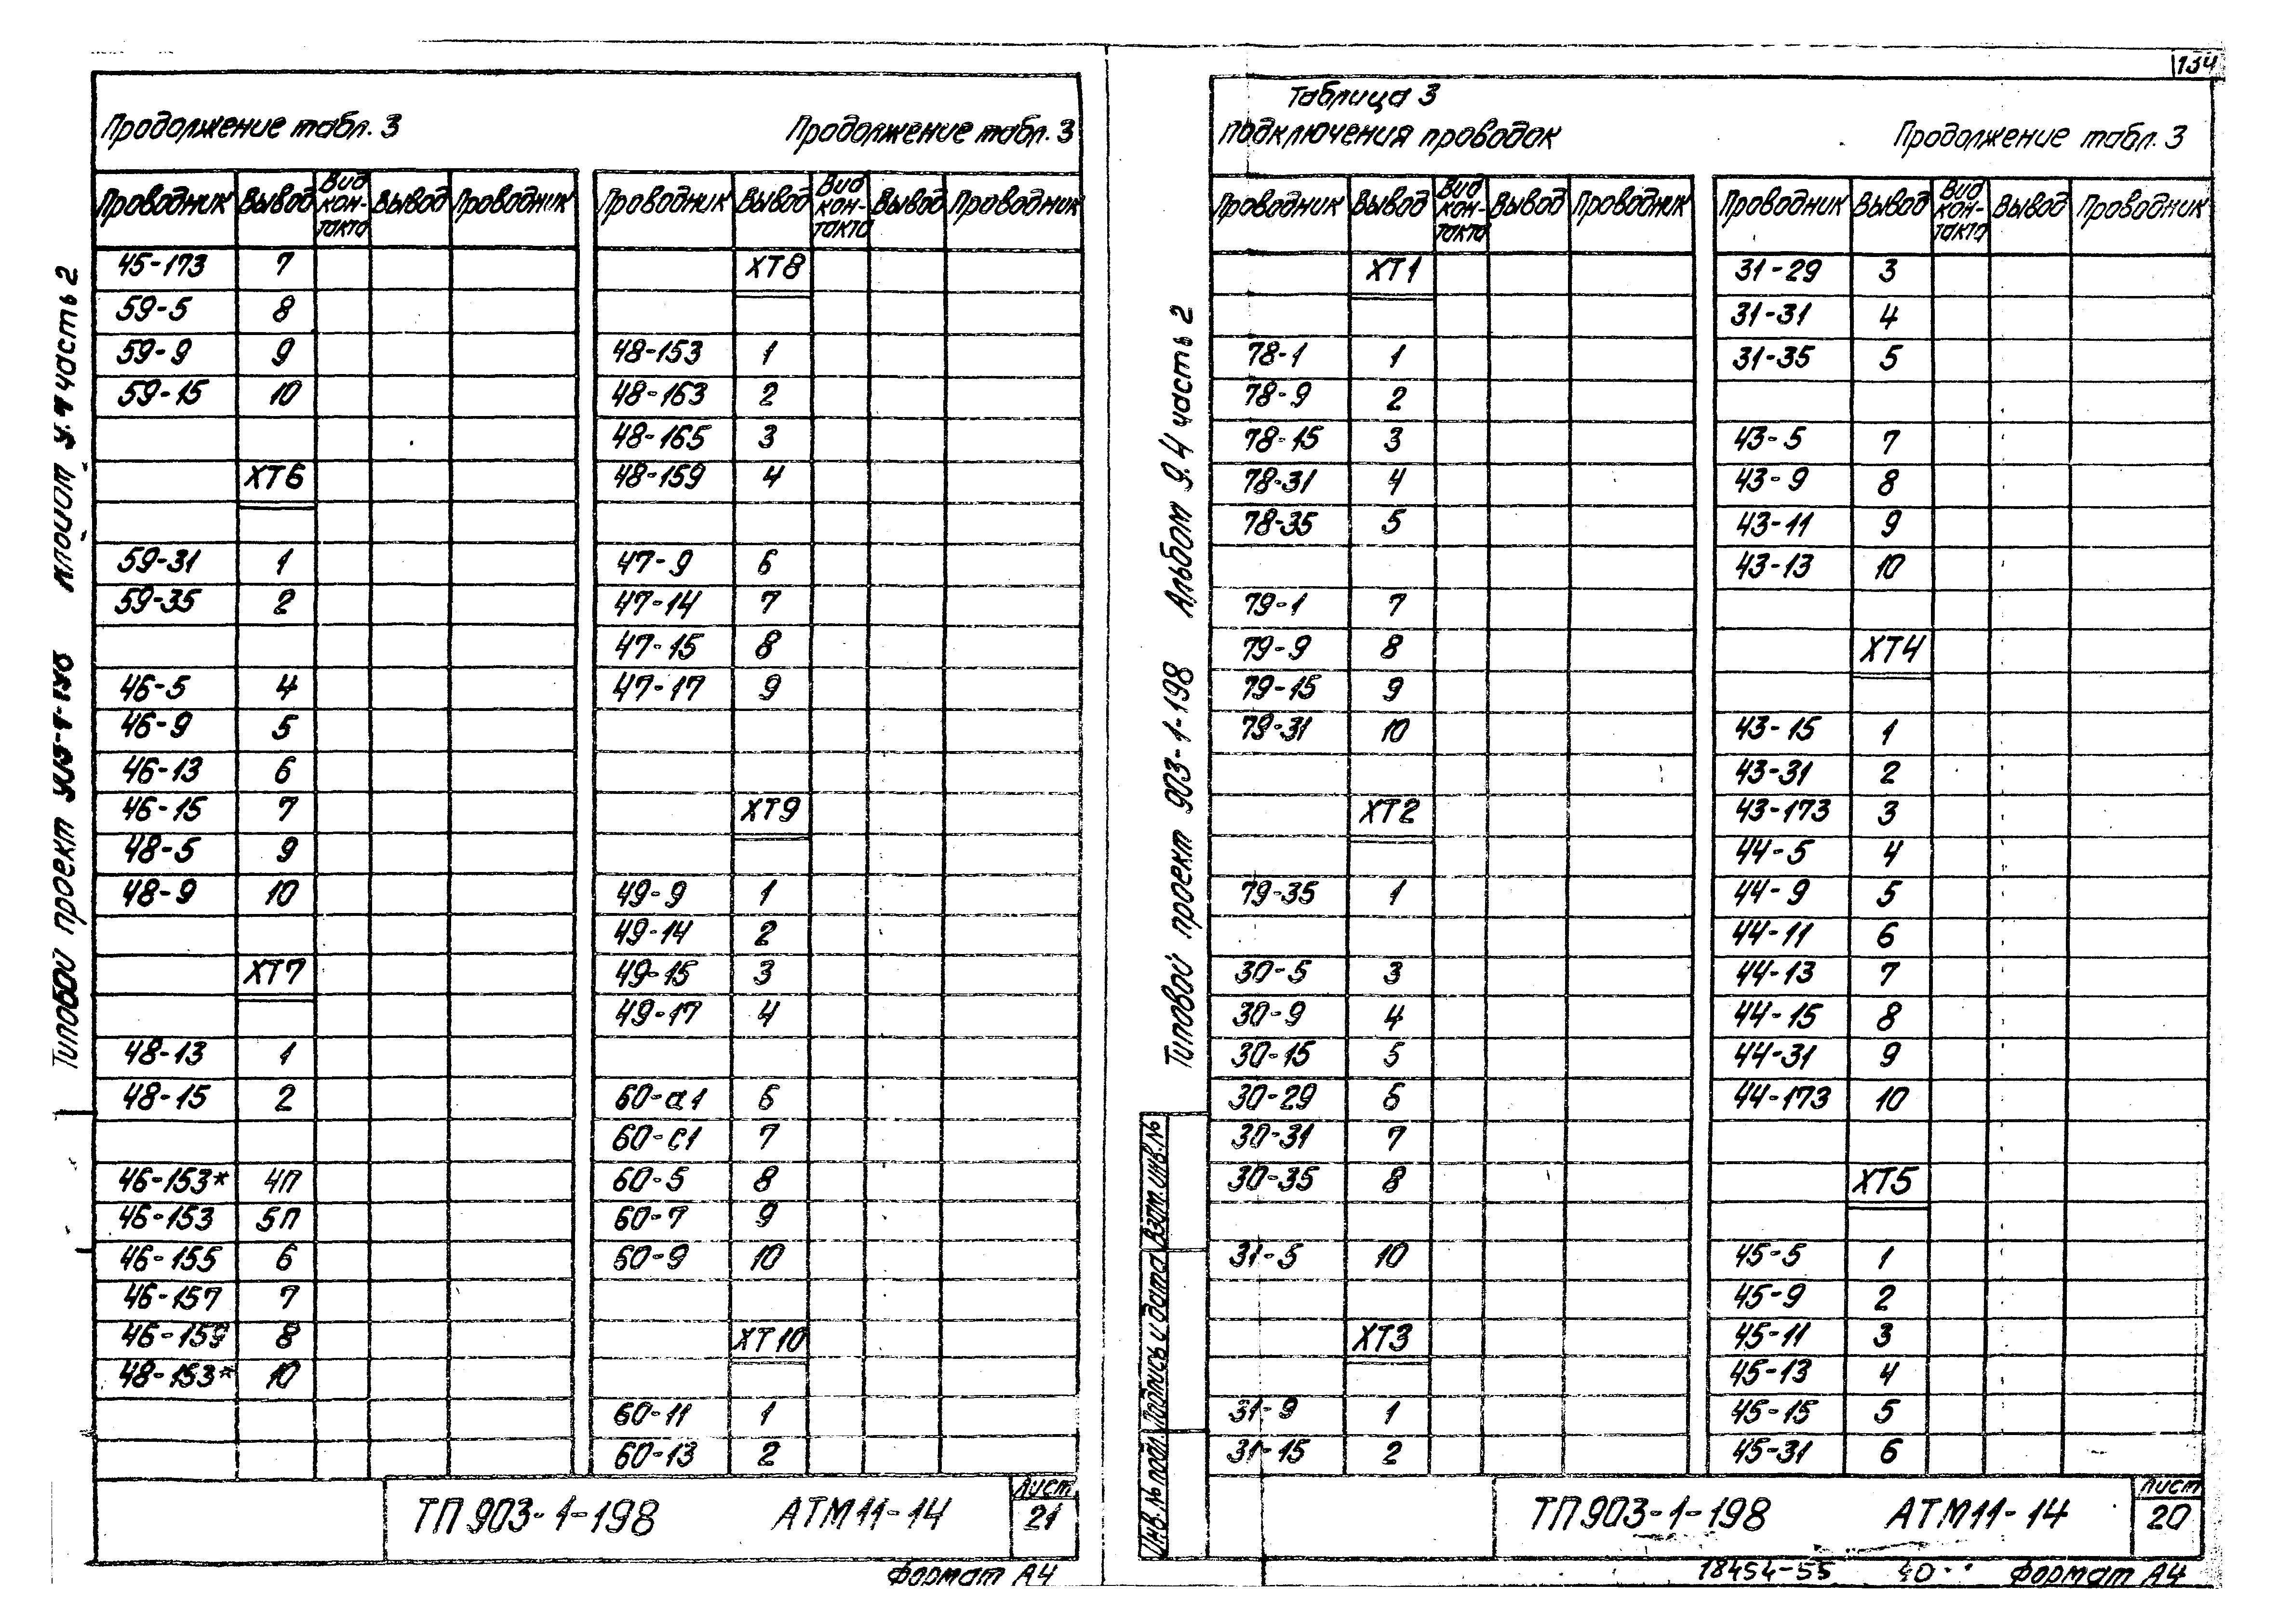 134
Продолжение табл. 3
Продолжение табл. 3
Проводник Вывод Вид кон-такта Вывод Проводник
45-173 7
59-5 8
59-9 9
59-15 10
ХТ6
59-31 1
59-35 2
46-5 4
46-9 5
46-13 6
46-15 7
48-5 9
48-9 10
ХТ7
48-13 1
48-15 2
46-153* 4П
46-153 5П
46-155 6
46-157 7
46-159 8
48-153* 10
Проводник Вывод Вид кон-такта Вывод Проводник
ХТ8
48-153 1
48-163 2
48-165 3
48-159 4
47-9 6
47-14 7
47-15 8
47-17 9
ХТ9
49-9 1
49-14 2
49-15 3
49-17 4
60-а1 6
60-с1 7
60-5 8
60-7 9
60-9 10
ХТ10
60-11 1
60-13 2
Типовой проект
часть 2
ТП 903-1-198 АТМ11-14
Лист
21
Формат А4
Таблица 3
подключения проводок
Продолжение табл. 3
Проводник Вывод Вид кон-такта Вывод Проводник
ХТ1
78-1 1
78-9 2
78-15 3
78-31 4
78-35 5
79-1 7
79-9 8
79-15 9
79-31 10
ХТ2
79-35 1
30-5 3
30-9 4
30-15 5
30-29 6
30-31 7
30-35 8
31-5 10
ХТ3
31-9 1
31-15 2
Проводник Вывод Вид кон-такта Вывод Проводник
31-29 3
31-31 4
31-35 5
43-5 7
43-9 8
43-11 9
43-13 10
ХТ4
43-15 1
43-31 2
43-173 3
44-5 4
44-9 5
44-11 6
44-13 7
44-15 8
44-31 9
44-173 10
ХТ5
45-5 1
45-9 2
45-11 3
45-13 4
45-15 5
45-31 6
Типовой проект 903-1-198 Альбом 9.4 часть 2
Инв. № подл. Подпись и дата Взам. инв. №
ТП 903-1-198 АТМ11-14
Лист
20
18454-55 40 Формат А4